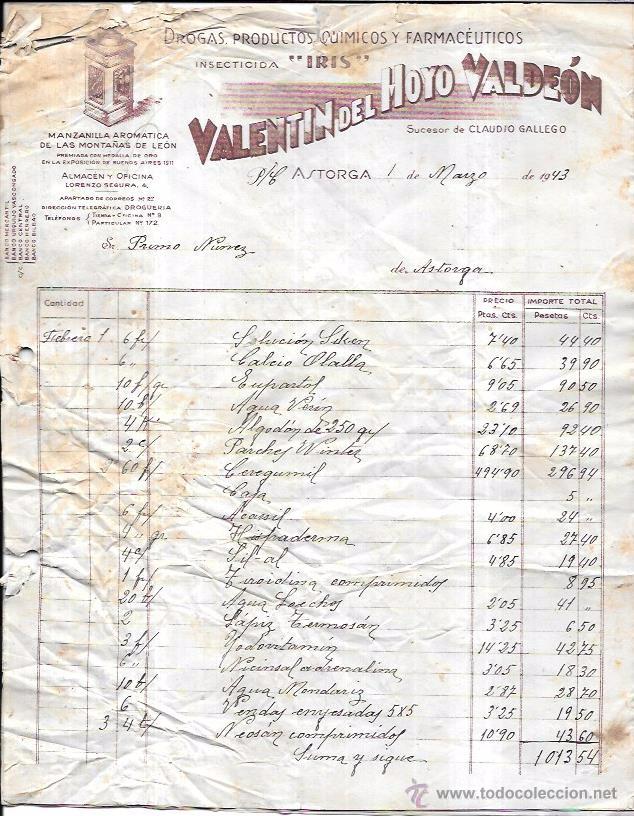 DROGAS, PRODUCTOS QUIMICOS Y FARMACÉUTICOS
INSECTICIDA "IRIS"
VALENTIN DEL HOYO VALDEÓN
Sucesor de CLAUDIO GALLEGO
MANZANILLA AROMATICA
DE LAS MONTAÑAS DE LEÓN
PREMIADA CON MEDALLA DE ORO
EN LA EXPOSICIÓN DE BUENOS AIRES 1911
ALMACEN Y OFICINA
LORENZO SEGURA, 4,
APARTADO DE CORREOS Nº 22
DIRECCIÓN TELEGRÁFICA DROGUERIA
TELÉFONOS TIENDA-OFICINA Nº 9
PARTICULAR Nº 172
C/C.
BANCO MERCANTIL
BANCO URQUIJO VASCONGADO
BANCO HERRERO
BANCO BILBAO
ASTORGA 1 de Marzo de 1943
Sr. Primo Núñez
de Astorga
Cantidad PRECIO IMPORTE TOTAL
Ptas. Cts. Pesetas Cts.
Febrero 1 6 f/ Solución 7'40 44 40
6 " Calcio Olalla 6'65 39 90
10 f/ gr 9'05 90 50
10 Agua Verin 2'69 26 90
4 Algodón de 250 gr 23'10 92 40
2 c/ Parches Winter 68'70 137 40
60 f/ Ceregumil 494'90 296 94
Caja 5 "
6 f/ 4'00 24 "
4 " gr Hispaderma 6'85 27 40
4 c/ Sil-al 4'85 19 40
1 f/ Tiroidina comprimidos 8 95
20 Agua 2'05 41 "
2 Lápiz Termosán 3'25 6 50
3 f/ Yodovitamín 14'25 42 75
6 " adrenalina 3'05 18 30
10 b/ Agua Mondariz 2'87 28 70
6 Vendas enyesadas 5x5 3'25 19 50
3 4 t/ Neosán comprimidos 10'90 43 60
Suma y sigue 1013 54
www.todocoleccion.net